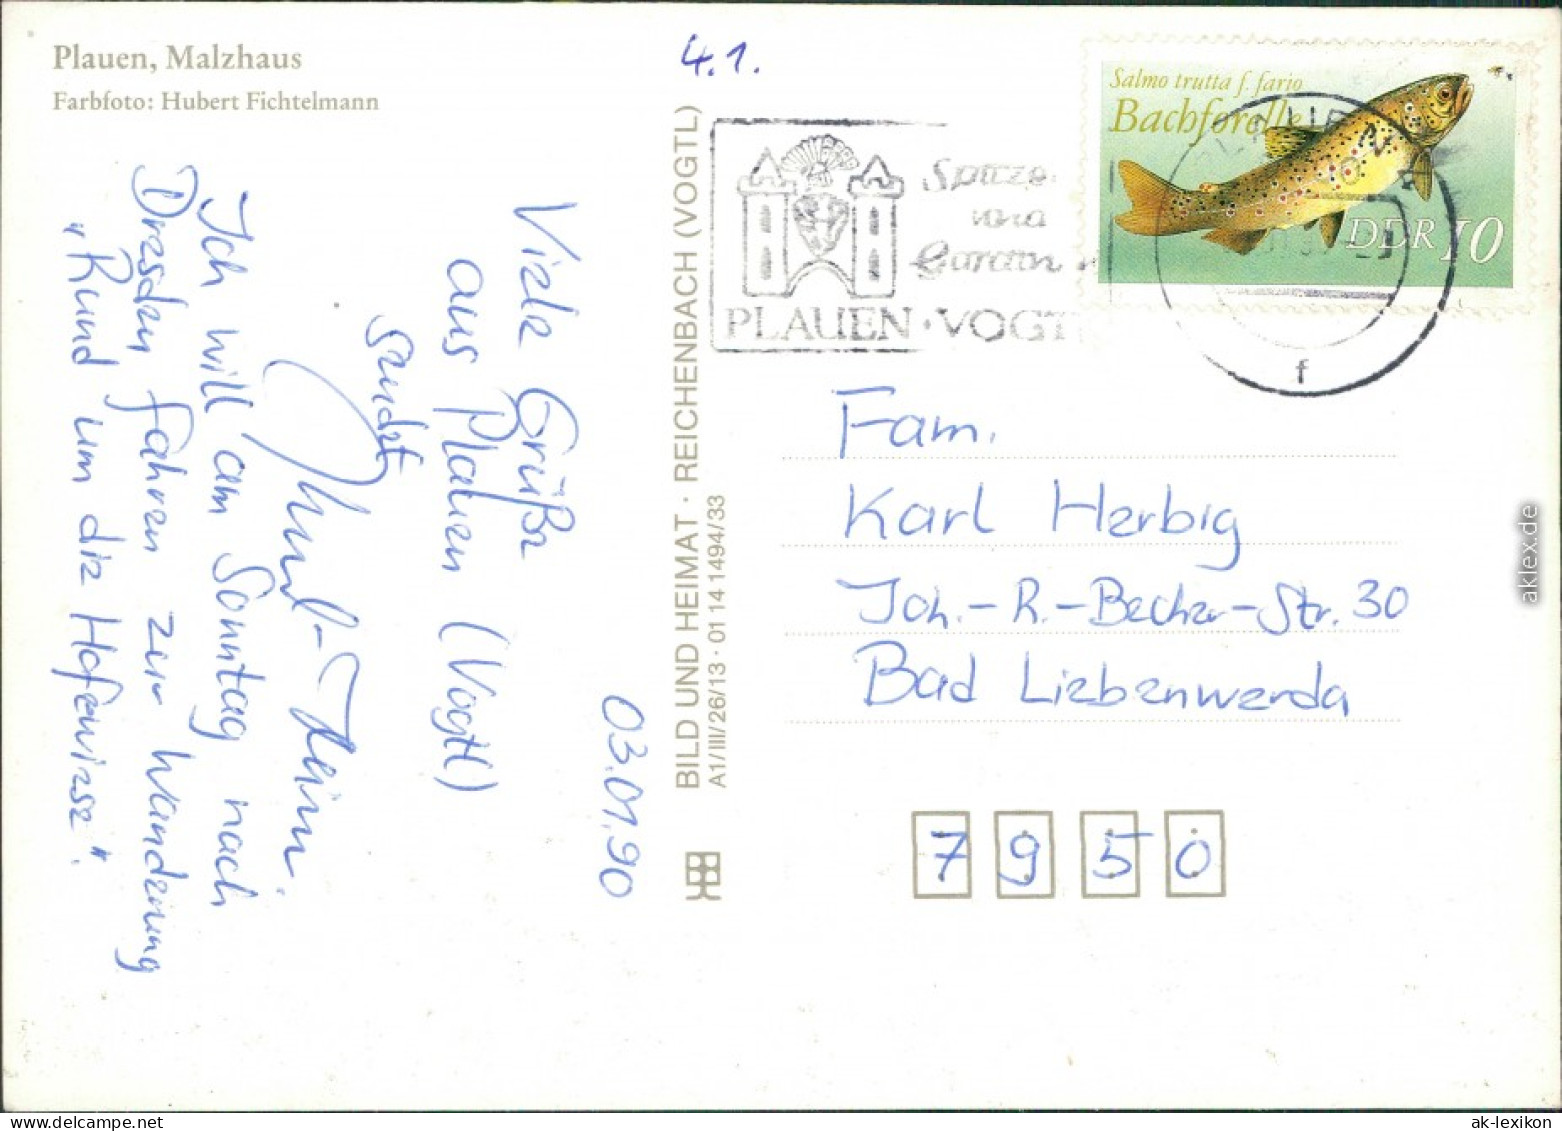 Plauen, Malzhaus
Farbfoto: Hubert Fichtelmann
4.1.
Salmo trutta f. fario
Bachforelle
DDR 10
Spitzen
und
Gardinen
PLAUEN · VOGT
f
03.01.90
Viele Grüße
aus Plauen (Vogtl)
sendet
Ich will am Sonntag nach
Dresden fahren zur Wanderung
"Rund um die Hofewiese".
BILD UND HEIMAT · REICHENBACH (VOGTL)
A1/III/26/13 · 01 14 1494/33
Fam.
Karl Herbig
Joh.-R.-Becher-Str. 30
Bad Liebenwerda
7950
aklex.de
ak-lexikon